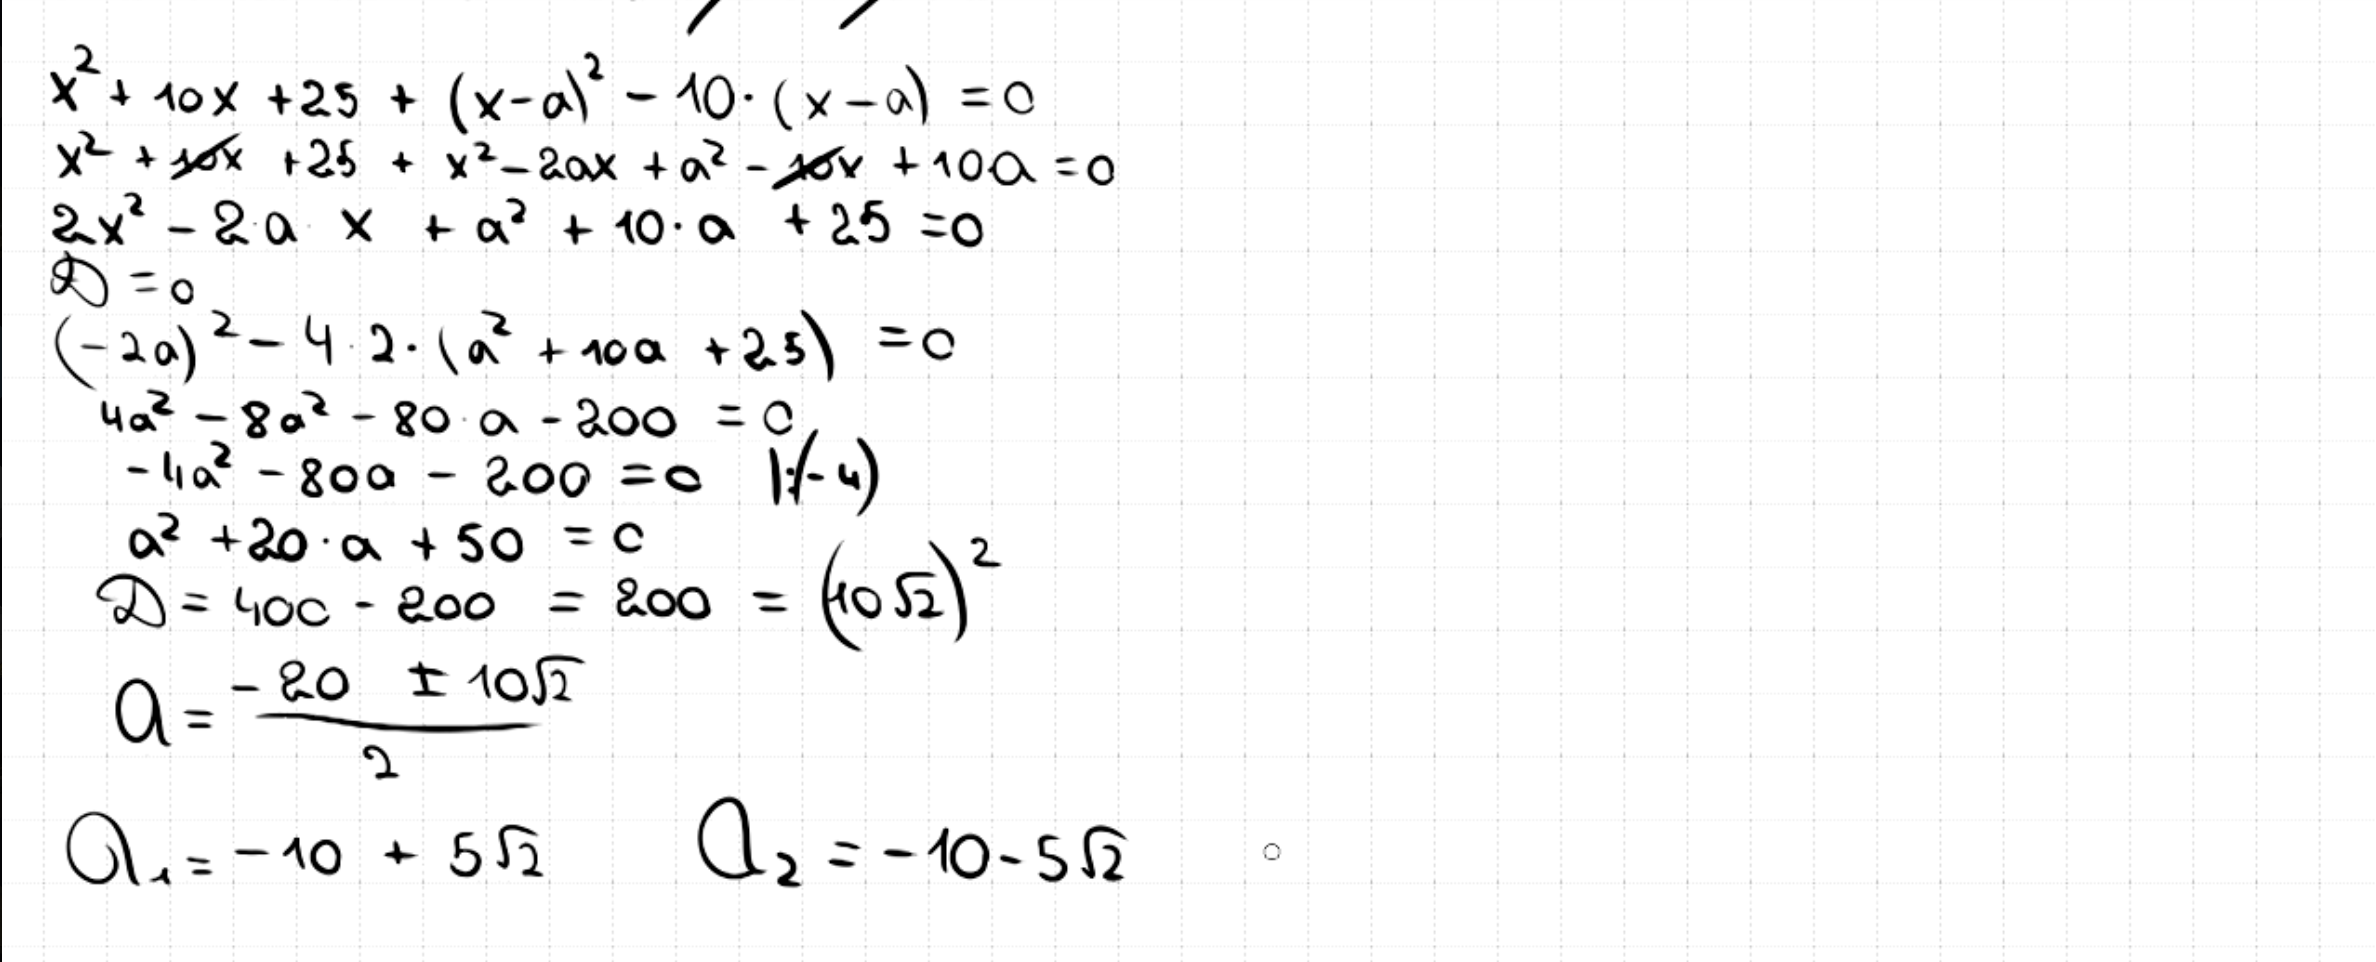 x² + 10x + 25 + (x-a)² - 10·(x-a) = 0
x² + 10x + 25 + x² - 2ax + a² - 10x + 10a = 0
2x² - 2·a·x + a² + 10·a + 25 = 0
D = 0
(-2a)² - 4·2·(a² + 10a + 25) = 0
4a² - 8a² - 80·a - 200 = 0
-4a² - 80a - 200 = 0 |:(-4)
a² + 20·a + 50 = 0
D = 400 - 200 = 200 = (10√2)²
a = (-20 ± 10√2)/2
a₁ = -10 + 5√2 a₂ = -10 - 5√2